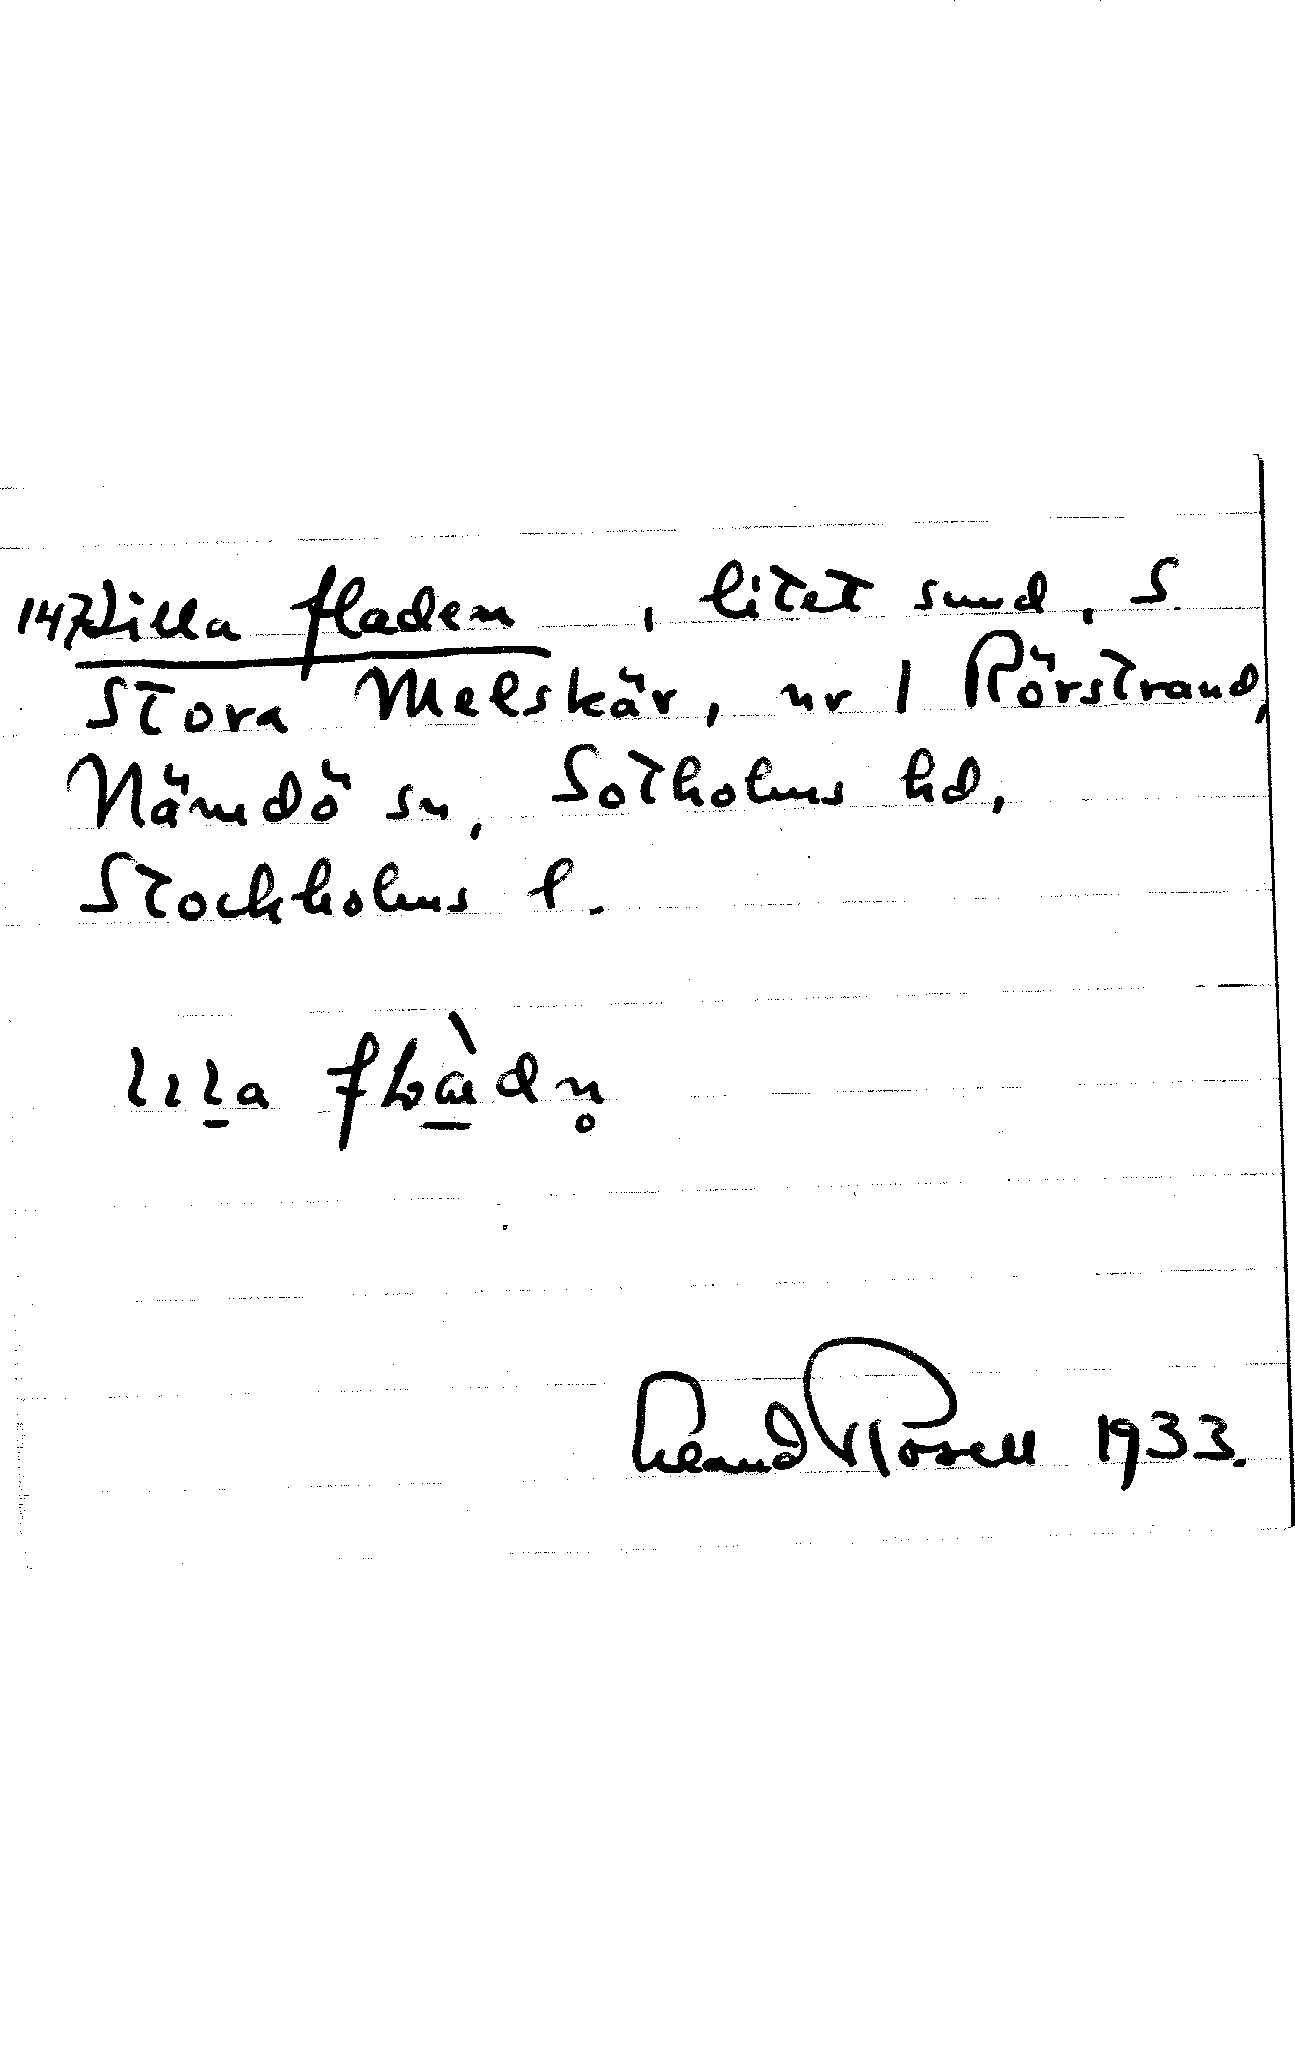 147 Lilla fladen, litet sund, S.
Stora Melskär, nr 1 Rörstrand,
Nämdö sn, Sotholms hd,
Stockholms l.
lıla flàdn̥
Rosell 1933.